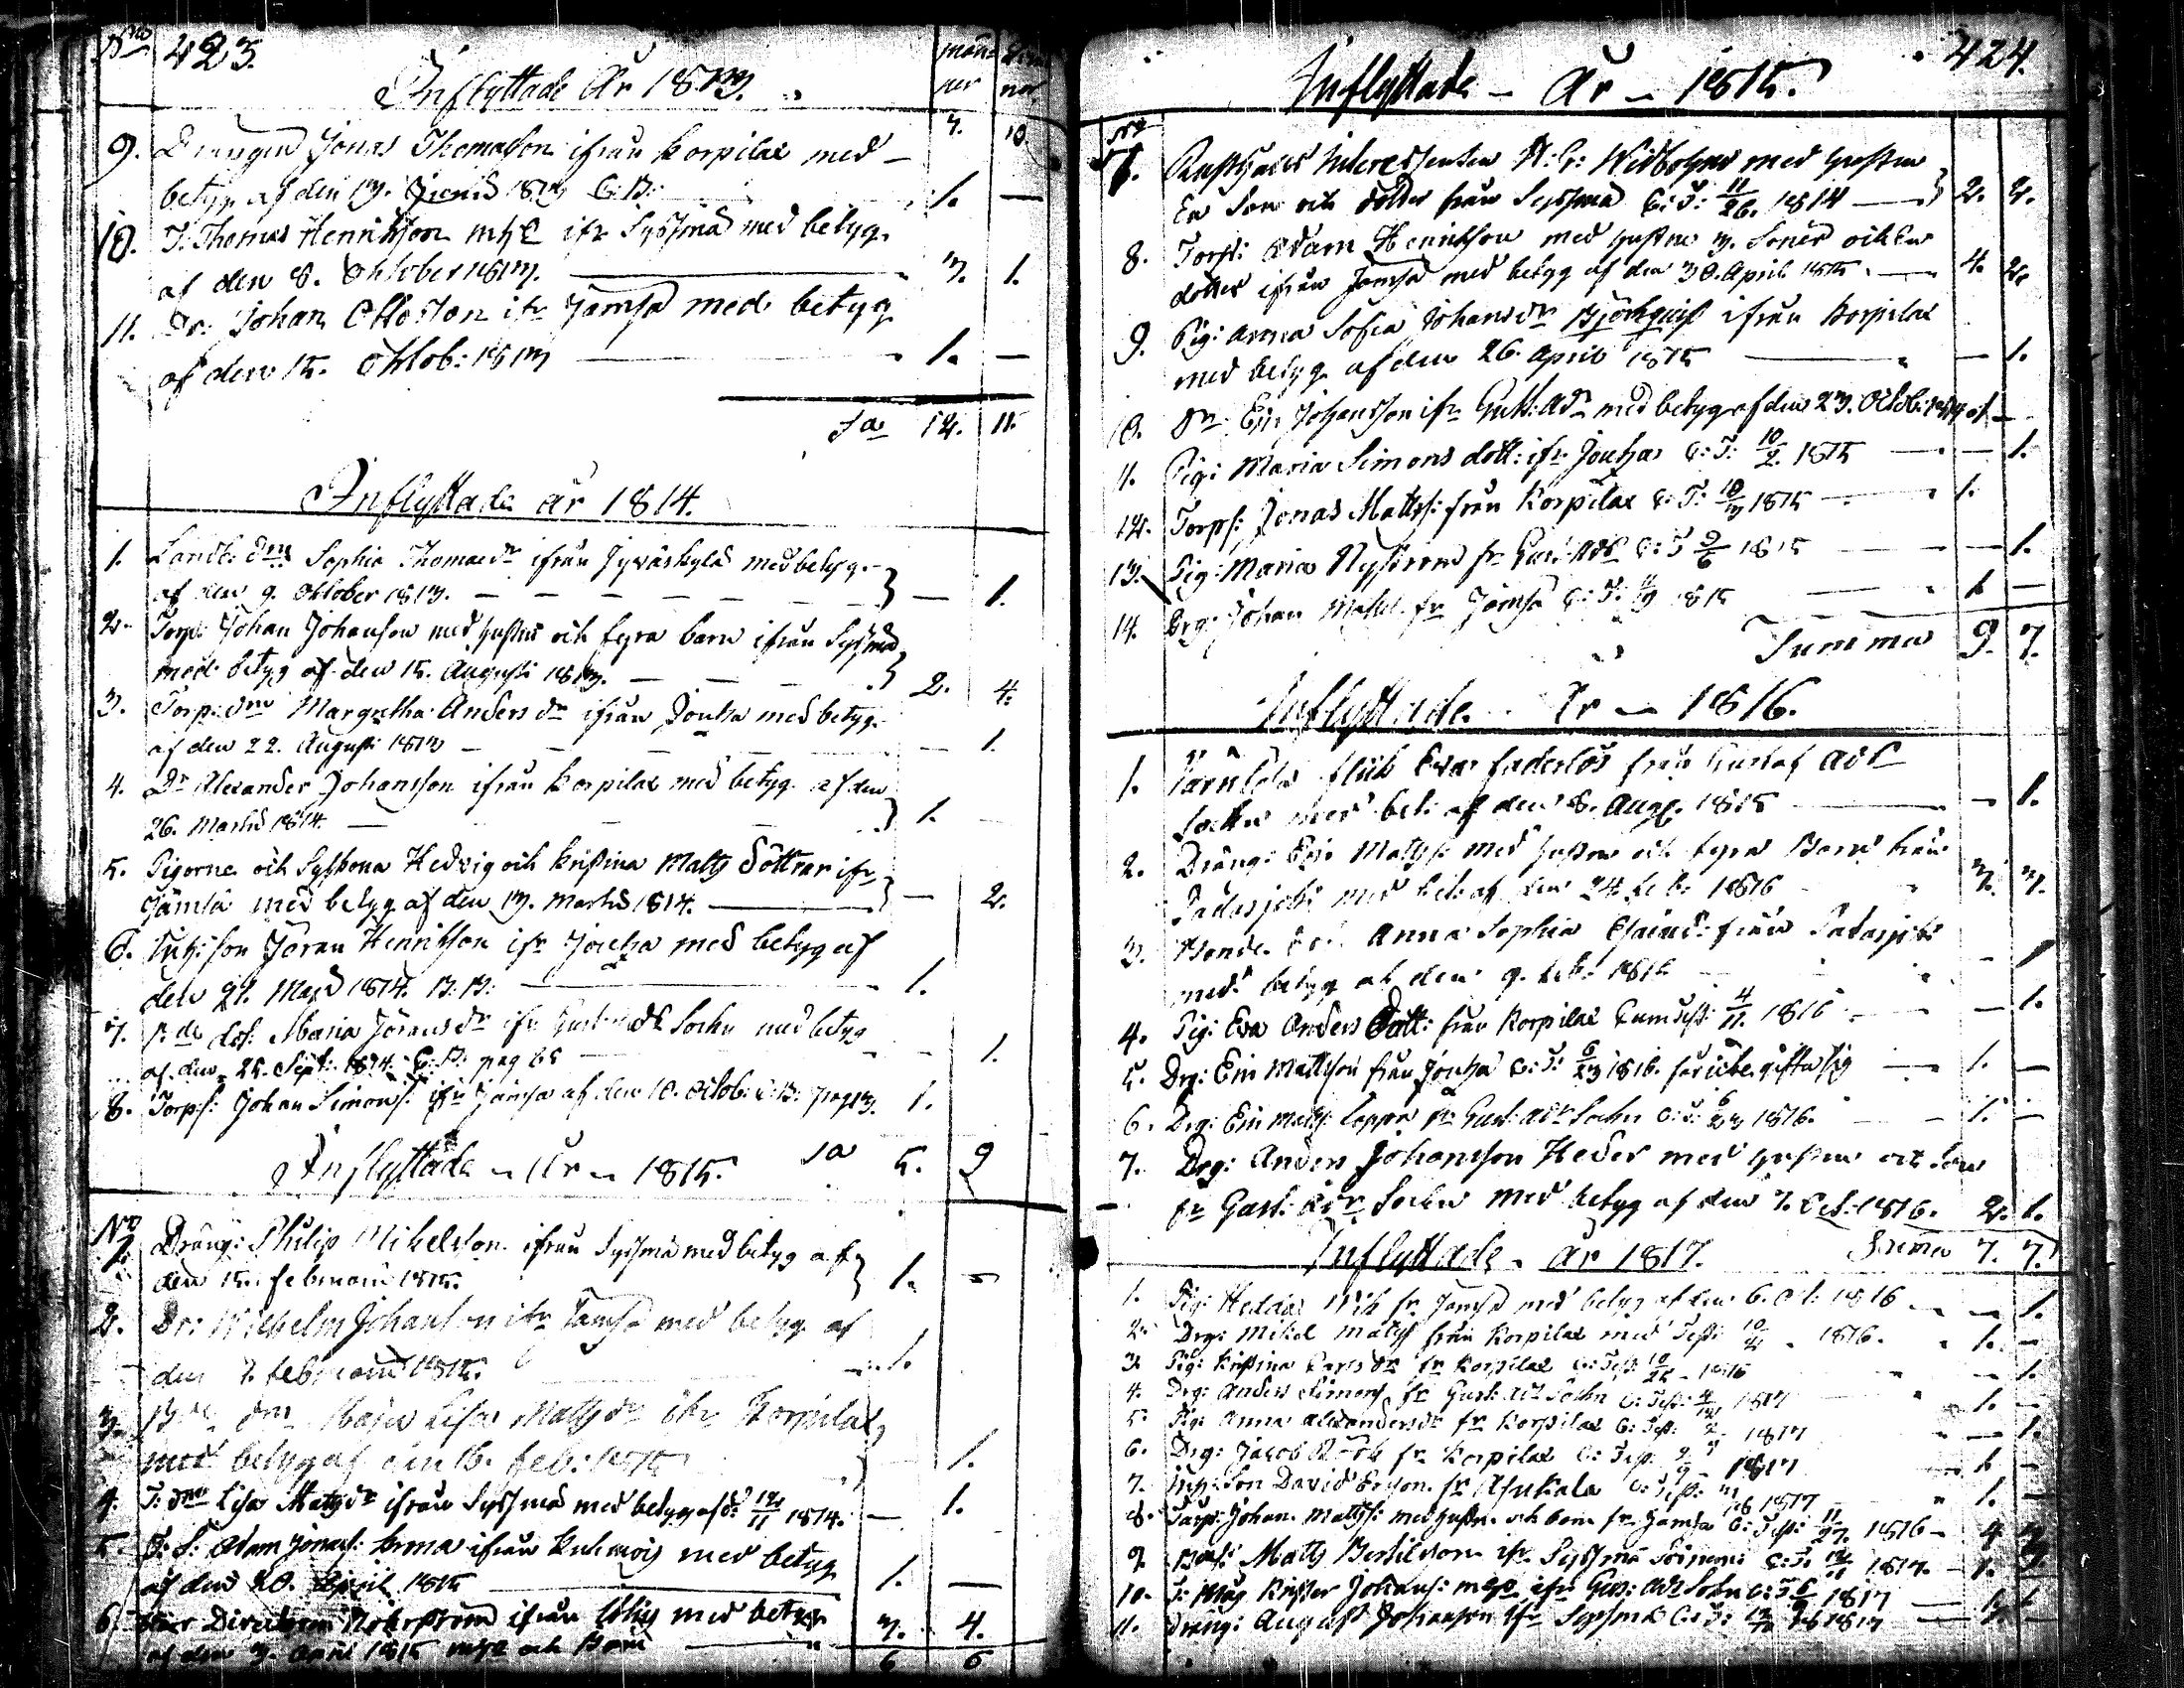 No 423.
Inflyttade År 1813.
män- ner qvin- nor
7. 10.
9. Drängen Jonas Thomasson ifrån Korpilax med
betyg af den 13. Junii 1813 C:B: 1. —
10. T: Thomas Henriksson m h ifr Syssmä med betyg
af den 8. Oktober 1813. 3. 1.
11. Dr: Johan Ottosson ifr Jämsä med betyg
af den 15. Oktob: 1813 1. —
Sa 12. 11.
Inflyttade år 1814.
1. Landb. dr Sophia Thomædr ifrån Jyväskylä med betyg
af den 9. Oktober 1813. — 1.
2. Torp: Johan Johansson med hustru och fyra barn ifrån Syssmä
med betyg af den 15. Augusti 1813. 2. 4.
3. Torp: dr Margetha Anders dr ifrån Joutsa med betyg
af den 22. Augusti 1813 — 1.
4. Dr Alexander Johansson ifrån Korpilax med betyg af den
26. Martii 1814. 1.
5. Pigorne och Syskona Hedvig och Kristina Matts döttrar ifr
Jämsä med betyg af den 13. Martii 1814. — 2.
6. Inh: son Jöran Henriksson ifr Joutsa med betyg af
den 21. Maji 1814. B:B: 1.
7. Maria Jöransdr ifr Gust: Ad: Sockn med betyg
af den 25. Sept: 1814. C:B: pag 65 1.
8. Torps: Johan Simons: ifr Jämsä af den 10. Octob: C:B: pag 13. 1.
Sa 5. 9
Inflyttade - År - 1815.
No
1. Dräng: Philip Mikelsson ifrån Syssmä med betyg af
den 15. februarii 1815. 1. —
2. Dr: Wilhelm Johansson ifr Jämsä med betyg af
den 7. februarii 1815. 1.
3. Maja Lisa Matts dr ifr Korpilax
med betyg af den 16. feb: 1815 — 1.
4. T: dr Lisa Matts dr ifrån Syssmä med betyg af d: 12/11 1814. — 1.
5. T: S: Adam Jonass: ifrån Kuhmois med betyg
af den 20. April 1815 1. —
6. Herr Directeuren ifrån med betyg
af den 3. April 1815 och Barn 3. 4.
6 6
424.
Inflyttade - År - 1815.
No
7. Rusthålls med hustru
En Son och dotter från Syssmä C:T: 11/26. 1814 2. 2.
8. Torp: Adam Henriksson med hustru 3. Söner och en
dotter ifrån Jämsä med betyg af den 30. April 1815. 4. 2.
9. Pig: Anna Sofia Johansdr Björkquist ifrån Korpilax
med betyg af den 26. April 1815 — 1.
10. Dr: Eric Johansson ifr Gust: Adr med betyg af den 23. Octob: 1814 1. —
11. Pig: Maria Simons dott: ifr Joutsa C:T: 10/2. 1815 — 1.
12. Torps: Jonas Matts: från Korpilax C:T: 10/3 1815 1.
13. Pig: Maria Nyström fr Gust: Adr C:T 9/6 1815 — 1.
14. Drg: Johan fr Jämsä C:T: 1815 1 —
Summa 9. 7.
Inflyttade - År - 1816.
1. flick Eva faderlös från Gustaf Adr
Sockn med bet: af den 8. Aug. 1815 — 1.
2. Dräng: Eric Matts: med hustru och fyra Barn från
Padasjoki med bet: af den 24 feb: 1816 3. 3.
3. Bonde Anna Sophia från Padasjoki
med betyg af den 9. feb: 1816 — 1
4. Pig: Eva Anders Dott: från Korpilax Cum test: 4/11. 1816 — 1.
5. Drg: Eric Mattsson från Joutsa C:T: 6/23 1816. gifta sig 1. —
6. Drg: Eric Matts: Loppa fr Gust: Adr Sockn C:T: 6/23 1816. 1. —
7. Drg: Anders Johansson Heder med hustru och son
fr Gust: Adr Sockn med betyg af den 7. Oct: 1816. 2. 1.
Summa 7. 7.
Inflyttade - år 1817.
1. Pig: Hedda fr Jämsä med betyg af den 6. Oct: 1816 — 1.
2. Drg: Mikel Matts från Korpilax med Test: 1816. 1. —
3. Pig: Kristina Carls dr fr Korpilax C: Test: 1816 — 1.
4. Drg: Anders Simons: fr Gust: Adr Sockn C: Test: 1817 1. —
5. Pig: Anna Alexandersdr fr Korpilax C: Test: 1817 — 1.
6. Drg: Jacob fr Korpilax C: Test: 1817 1 —
7. Inh: Son David Ericson fr Asikala C: Test: 1817 1. —
8. Torp: Johan Matts: med hustru och barn fr Jämsä C: Test: 11/27. 1816 4
9. Matts Bertilsson ifr Syssmä C:T. 1814. 1.
10. Johans: ifr Gus: Adr Sockn C:T 1817
11. Dräng: August Johansson ifr Syssmä C:T: 1817